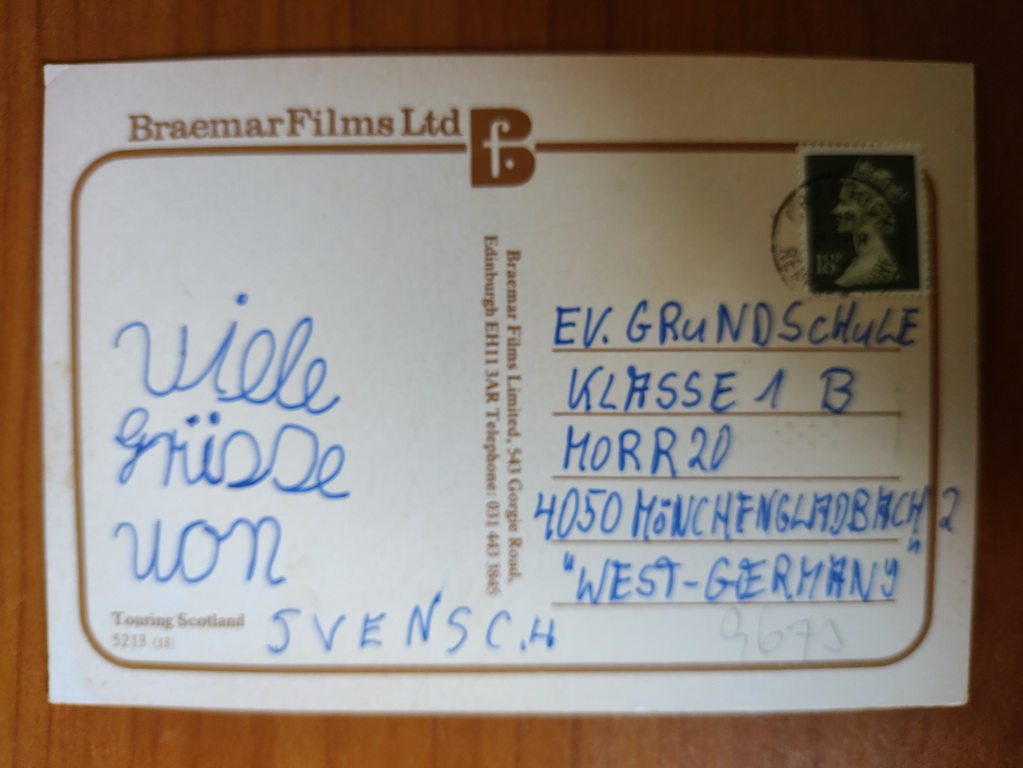 Braemar Films Ltd
Bf.
Viele
Grüsse
von
SVEN SCH
Touring Scotland
5213 (13)
Braemar Films Limited, 543 Gorgie Road,
Edinburgh EH11 3AR Telephone: 031 443 3848
EV. GRUNDSCHULE
KLASSE 1 B
MORR 20
4050 MÖNCHENGLADBACH 2
"WEST-GERMANY"